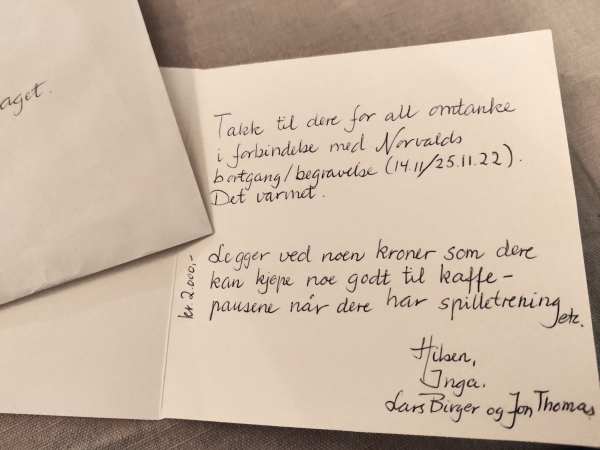 aget.
Takk til dere for all omtanke
i forbindelse med Norvalds
bortgang/begravelse (14.11/25.11.22).
Det varmet.
Legger ved noen kroner som dere
kan kjøpe noe godt til kaffe-
pausene når dere har spilletrening
etc.
kr. 2.000,-
Hilsen,
Inga.
Lars Birger og Jon Thomas